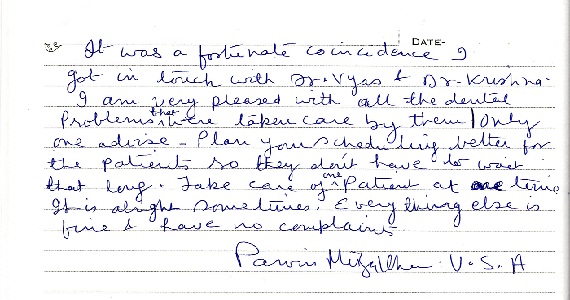 DATE-
It was a fortunate coincidence I
got in touch with Dr. Vyas & Dr. Krishna.
I am very pleased with all the dental
Problems that were taken care by them Only
one advise - Plan your scheduling better for
the patients so they don't have to wait
that long. Take care of one Patient at one time
It is alright sometimes. Everything else is
fine & have no complains
Parvin U.S.A